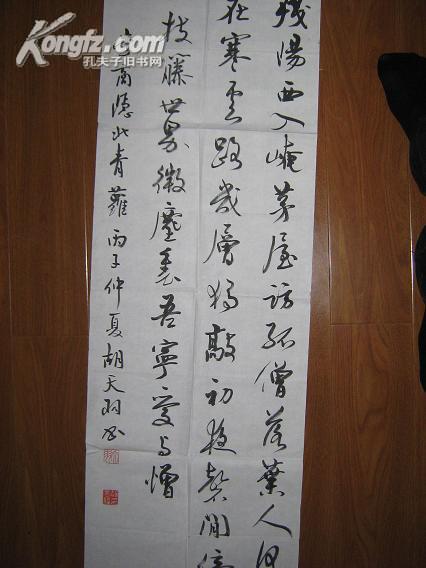 Kongfz.com
孔夫子旧书网
殘陽西入崦茅屋訪孤僧落葉人何
在寒雲路幾層獨敲初夜磬閒倚
枝藤世界微塵裏吾寧愛与憎
商隱北青蘿丙子仲夏胡天羽書